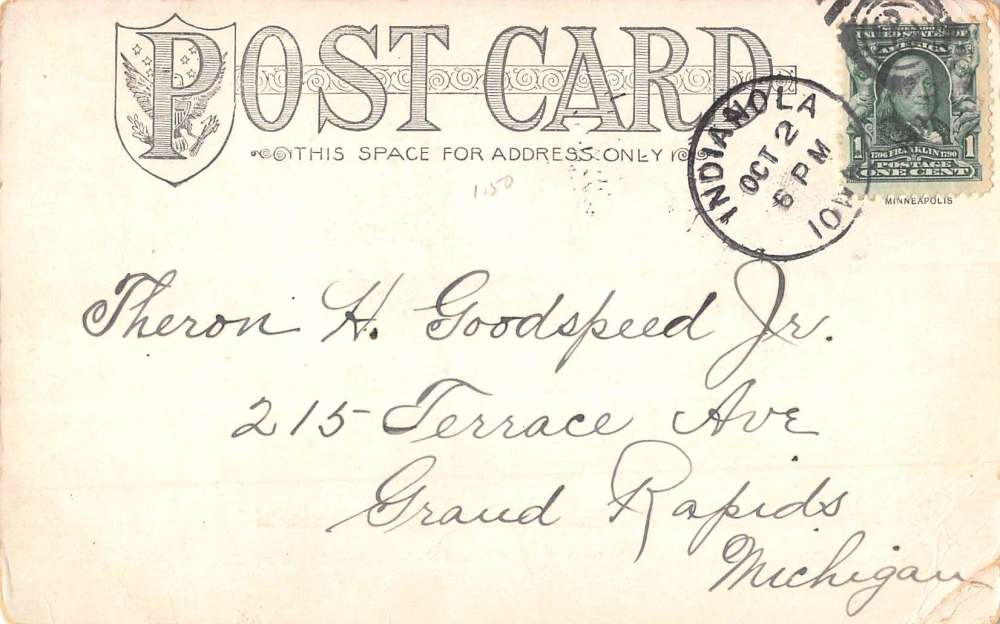 POST CARD
THIS SPACE FOR ADDRESS ONLY
1.50
INDIANOLA
OCT 2
6 PM
IOW
UNITED STATES OF
AMERICA
1 1706 FRANKLIN 1790 1
POSTAGE
ONE CENT
MINNEAPOLIS
Theron H. Goodspeed Jr.
215 Terrace Ave
Grand Rapids
Michigan